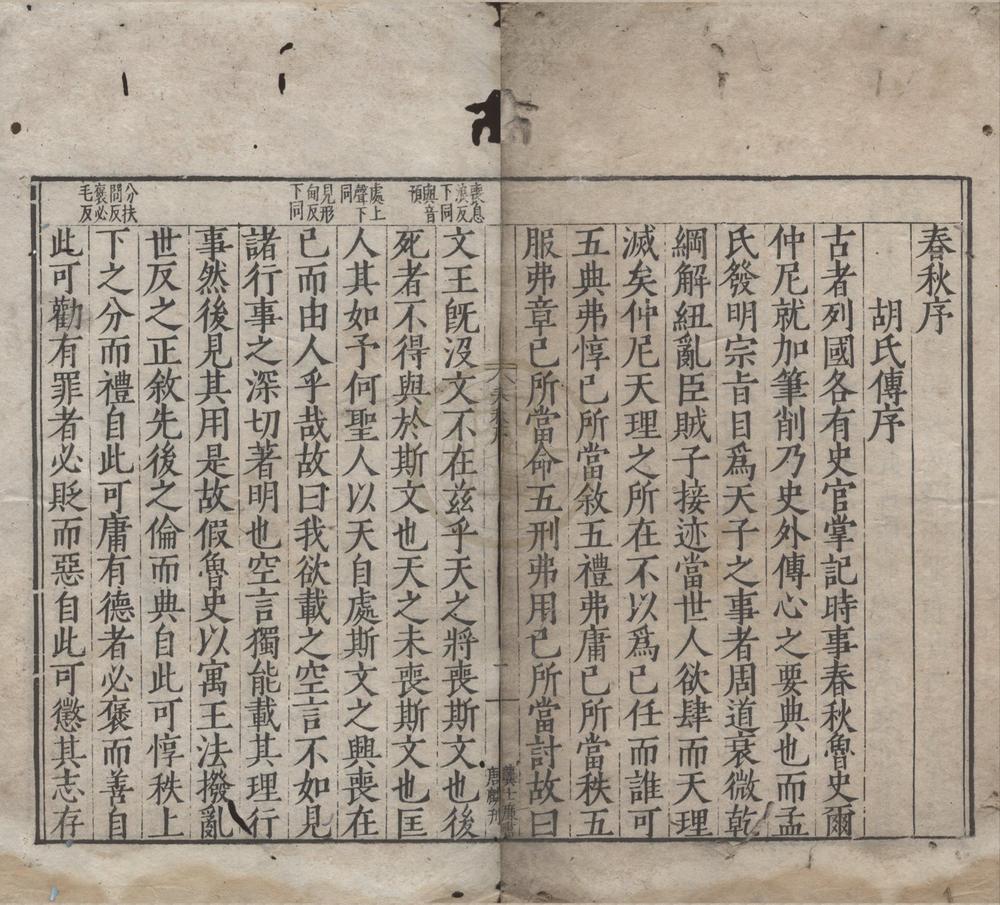 春秋序
胡氏傳序
古者列國各有史官掌記時事春秋魯史爾
仲尼就加筆削乃史外傳心之要典也而孟
氏發明宗旨目爲天子之事者周道衰微乾
綱解紐亂臣賊子接迹當世人欲肆而天理
滅矣仲尼天理之所在不以爲已任而誰可
五典弗惇已所當敘五禮弗庸已所當秩五
服弗章已所當命五刑弗用已所當討故曰
喪息
浪反
下同
與音
預
文王旣沒文不在茲乎天之將喪斯文也後
死者不得與於斯文也天之未喪斯文也匡
處上
聲下
同
人其如予何聖人以天自處斯文之興喪在
見形
甸反
下同
已而由人乎哉故曰我欲載之空言不如見
諸行事之深切著明也空言獨能載其理行
事然後見其用是故假魯史以寓王法撥亂
世反之正敘先後之倫而典自此可惇秩上
分扶
問反
褒必
毛反
下之分而禮自此可庸有德者必褒而善自
此可勸有罪者必貶而惡自此可懲其志存